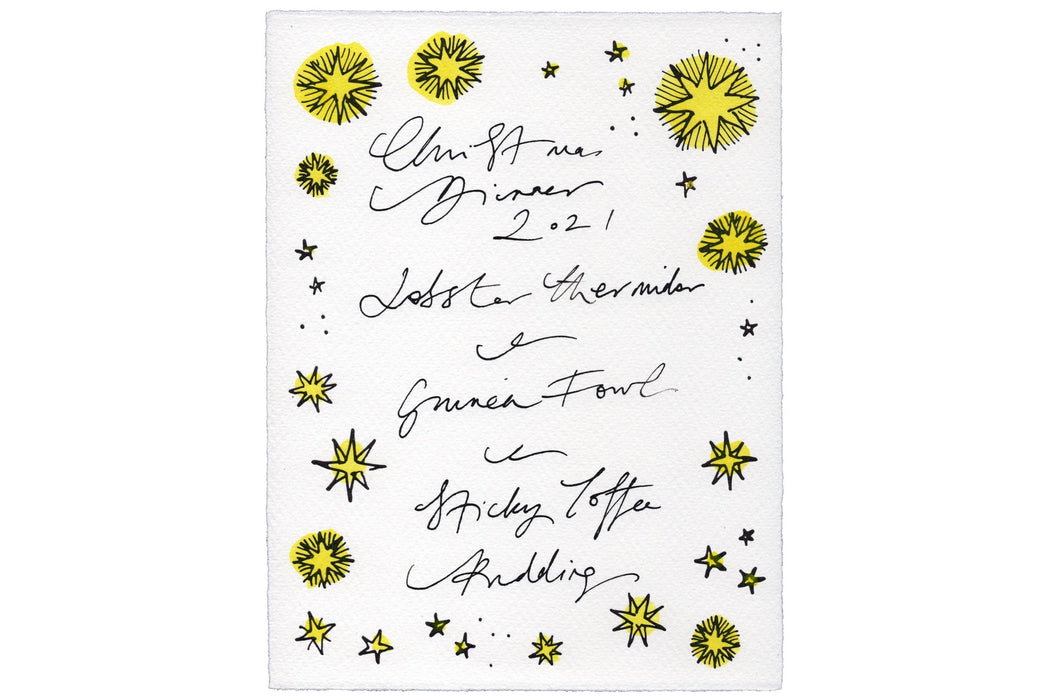 Christmas
Dinner
2021
Lobster thermidor
Guinea Fowl
Sticky Toffee
Pudding